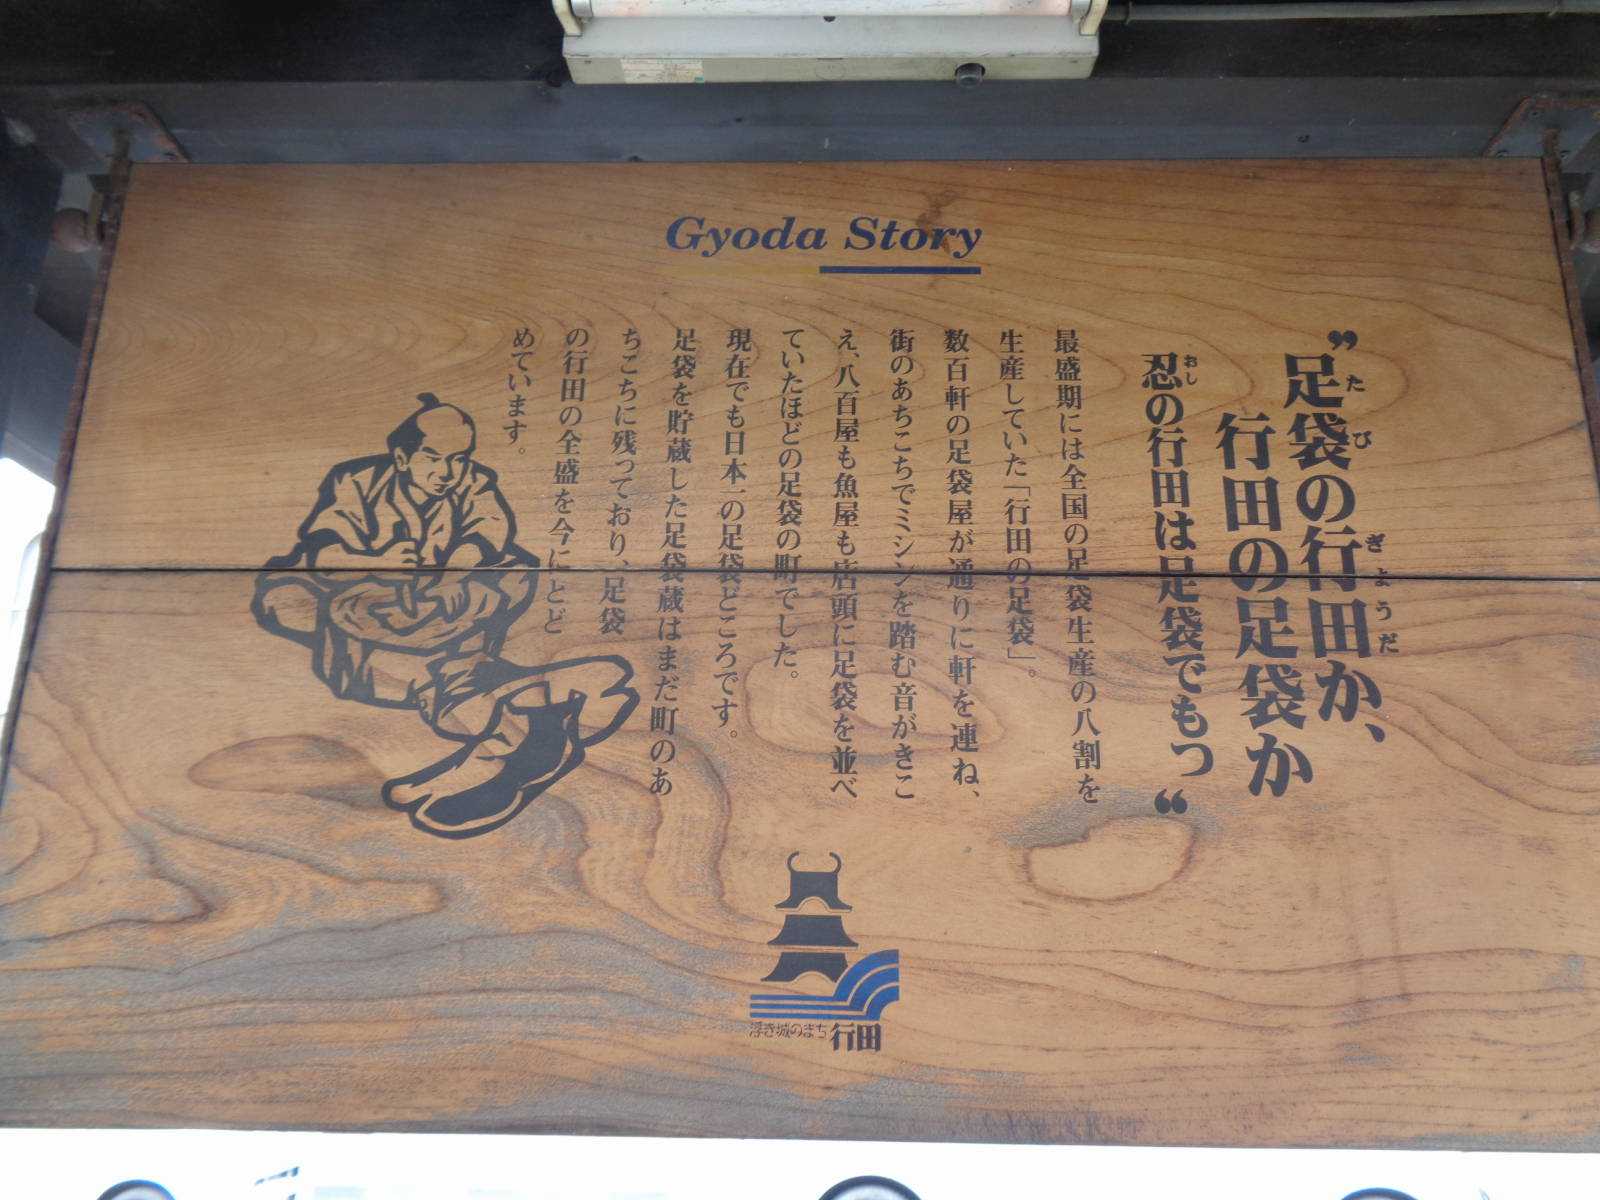 Gyoda Story
”足袋の行田か、
行田の足袋か
忍の行田は足袋でもつ“
たび
ぎょうだ
おし
最盛期には全国の足袋生産の八割を
生産していた「行田の足袋」。
数百軒の足袋屋が通りに軒を連ね、
街のあちこちでミシンを踏む音がきこ
え、八百屋も魚屋も店頭に足袋を並べ
ていたほどの足袋の町でした。
現在でも日本一の足袋どころです。
足袋を貯蔵した足袋蔵はまだ町のあ
ちこちに残っており、足袋
の行田の全盛を今にとど
めています。
浮き城のまち行田